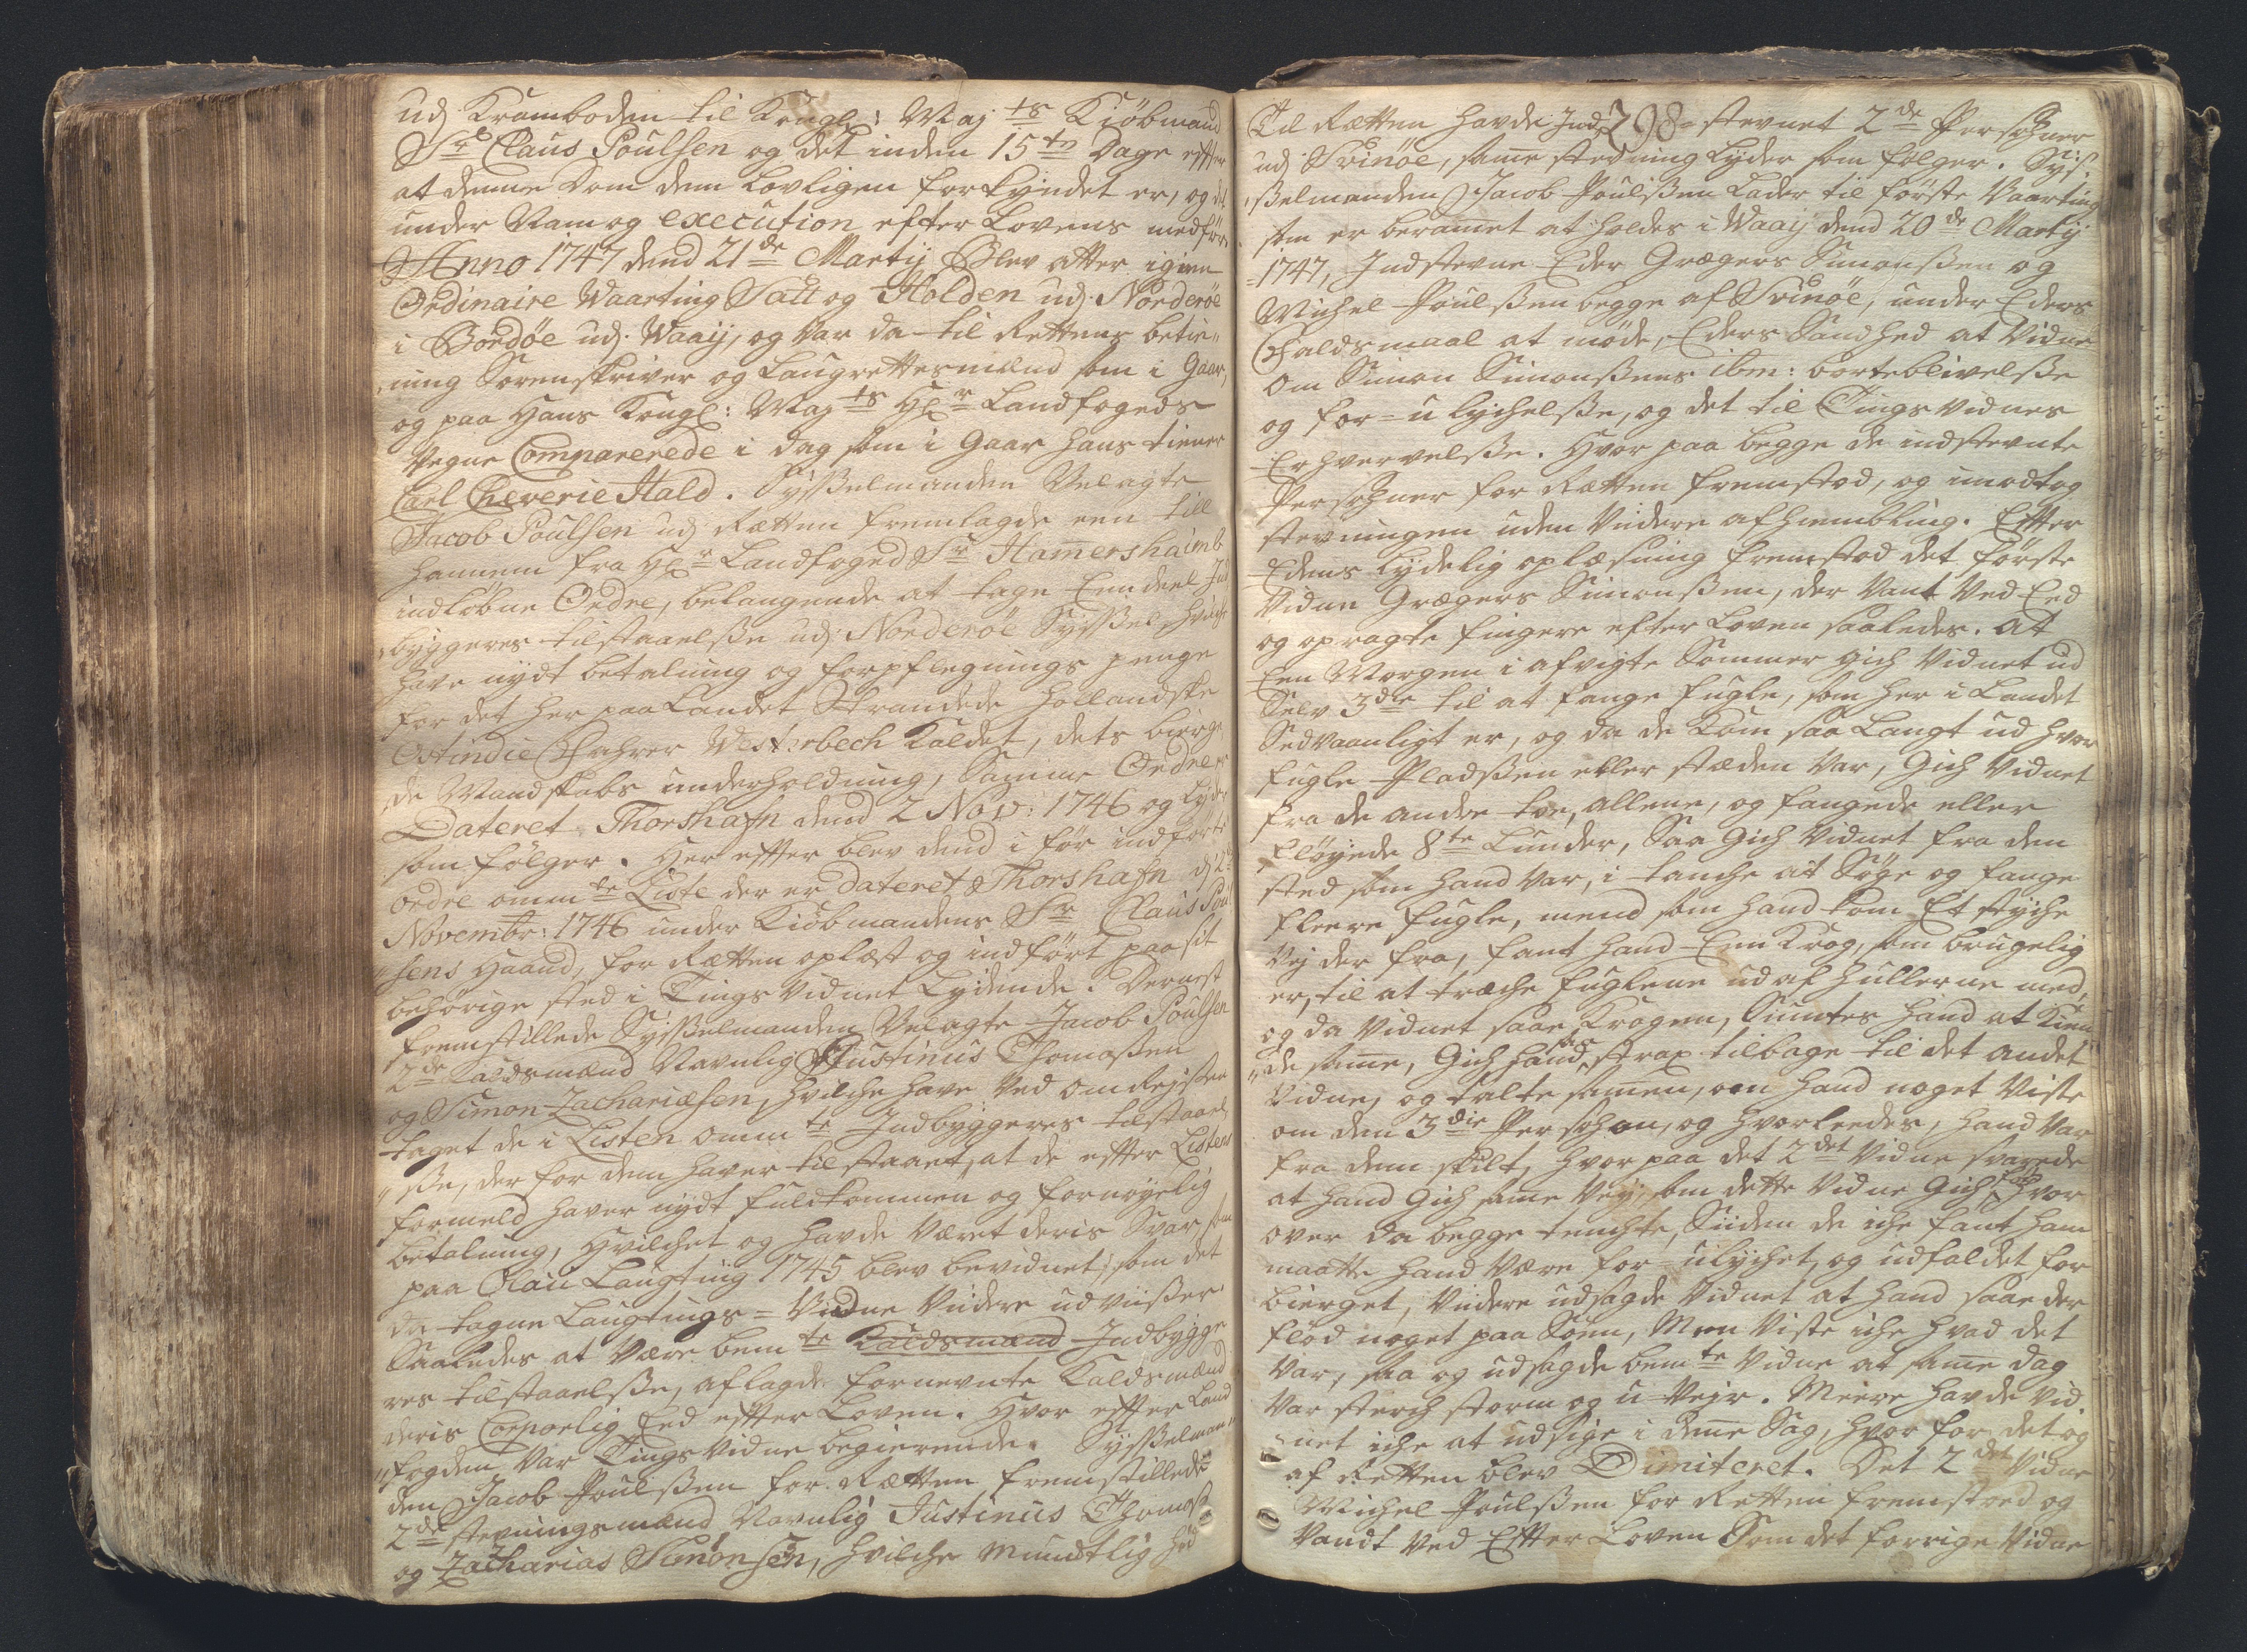 udj Kramboden til Kongl: Maj ts Kiöbmand
Sr Claus Poulsen og det inden 15 tn Dage effter
at denne Dom dem lovligen forkyndet er, og det
under Nam og execution efter Lovens medför
Anno 1747 dend 21 de Martij Blev atter igien
Ordinaire Waarting Satt og Holden udj Norderöe
i Bordöe udj Waaij, og var da til Rettens betie„
„ning Sorenskriver og Laugrettesmænd som i Gaar,
og paa Hans Kongl: Maj ts Hr Landfogeds
Vegne Comparerede i dag som i Gaar hans tiener
Carl Cheverie Hald. Sysselmanden Velagte
Jacob Poulsen udj Rætten fremlagde een till
hannem fra Hr Landfoged Sr Hamershaimb
indløbne Ordre, belangende at tage Een deel Ind
„byggeres tilstaaelsse udj Norderöe Sysssel, hvilche
have nydt betalning og forpflegnings penge
for det her paa Landet Strandede Hollandske
Ostindie Fahrer Westerbech kaldet, dets bierge
„de Mandskabs underholdning, Samme Ordre er
Dateret Thorshafn dend 2 Nov: 1746 og lyder
som følger. Her effter blev dend i før indførte
ordre omm te Liste der er dateret Thorshafn d: 2
Novembr: 1746 under Kiöbmandens Sr Claus Poul
„sens Haand, for Rætten oplæst og indført paa sit
behörige sted i Tings Vidnet Lydende. Dernest
fremstillede Sysselmanden Velagte Jacob Poulsen
2de Kaldsmænd Navnlig Justinus Thomassen
og Simon Zachariæsen, hvilche have ved omrejsse
taget de i Listen omm te Indbyggeres tilstaael
„sse, der for dem haver tilstaaet, at de effter Listens
formeld haver nydt fuldkommen og fornøyelig
betalning, hvilchet og havde været deris Svar, som
paa Olai Laugting 1745 blev bevidnet, som det
da tagne Laugtings=Vidne Viidere udviisser
Saaledes at være bem te Kaldsmænd Indbygge
res tilstaaelsse, aflagde fornevnte Kaldsmænd
deris Corporlig Eed effter Loven. Hvor effter Land
„fogden var Tings Vidne begierende. Sysselman„
den Jacob Poulssen for Rætten fremstillede
2de stevningsmænd Navnlig Justinus Thomass
og Zacharias Simonsen, hvilche mundtlig hid
298
Til Rætten havde Ind=stevnet 2 de Persohner
udj Svinöe, same stevning lyder som følger. Sys„
„sselmanden Jacob Poulssen lader til første Vaarting
som er beramet at holdes i Waaij dend 20 de Martij
1747, Indstevne Eder Grægers Simonssen og
Michel Poulssen begge af Svinöe, under Eders
Faldsmaal at møde, Eders Sandhed at Vidne
om Simon Simonssens ibm: borteblivelsse
og for=u lychelsse, og det til Tings Vidnes
Erhvervelsse. Hvor paa begge de indstevnte
Persohner for Rætten fremstod, og imodtog
stevningen uden Viidere afhiembling. Effter
Edens lydelig oplæsning fremstod det første
Vidne Grægers Simonssen, der Vant ved Eed
og opragte fingere efter Loven saaledes. At
Een Morgen i afvigte Sommer gich Vidnet ud
Selv 3die til at fange fugle, som her i Landet
Sedvaanligt er, og da de kom saa langt ud hvor
fugle Pladssen eller stæden var, Gich Vidnet
fra de andre toe, allene, og fangede eller
fløyede 8te Lunder, Saa Gich Vidnet fra dem
sted som hand var, i tanche at Søge og fange
fleere fugle, mend som hand kom Et styche
Vej der fra, fant hand Een Krog, som brugelig
er, til at træche fuglene ud af hullerne med,
og da Vidnet saae Krogen, Syntes hand at kien
„de same, Gich hand saa strax tilbage til det andet
Vidne, og talte samen, om hand noget viste
om den 3die Persohn, og hvorleedes, hand var
fra dem skilt, hvor paa det 2det Vidne svarede
at hand Gich same Vey, som dette Vidne Gich, hvor
over da begge tenchte, Siiden de iche fant ham
maatte hand være for=ulychet, og udfaldet for
bierget, Viidere udsagde Vidnet at hand saae der
flød noget paa Söen, Men viste iche hvad det
var, saa og udsagde bem te Vidne at same dag
var sterch storm og u-Vejr. Meere havde Vid„
„net iche at udsige i denne Sag, hvor for det og
af Retten blev Dimiteret. Det 2det Vidne
Michel Poulssen for Retten fremstoed og
Vandt ved Effter Loven Som det forrige Vidne